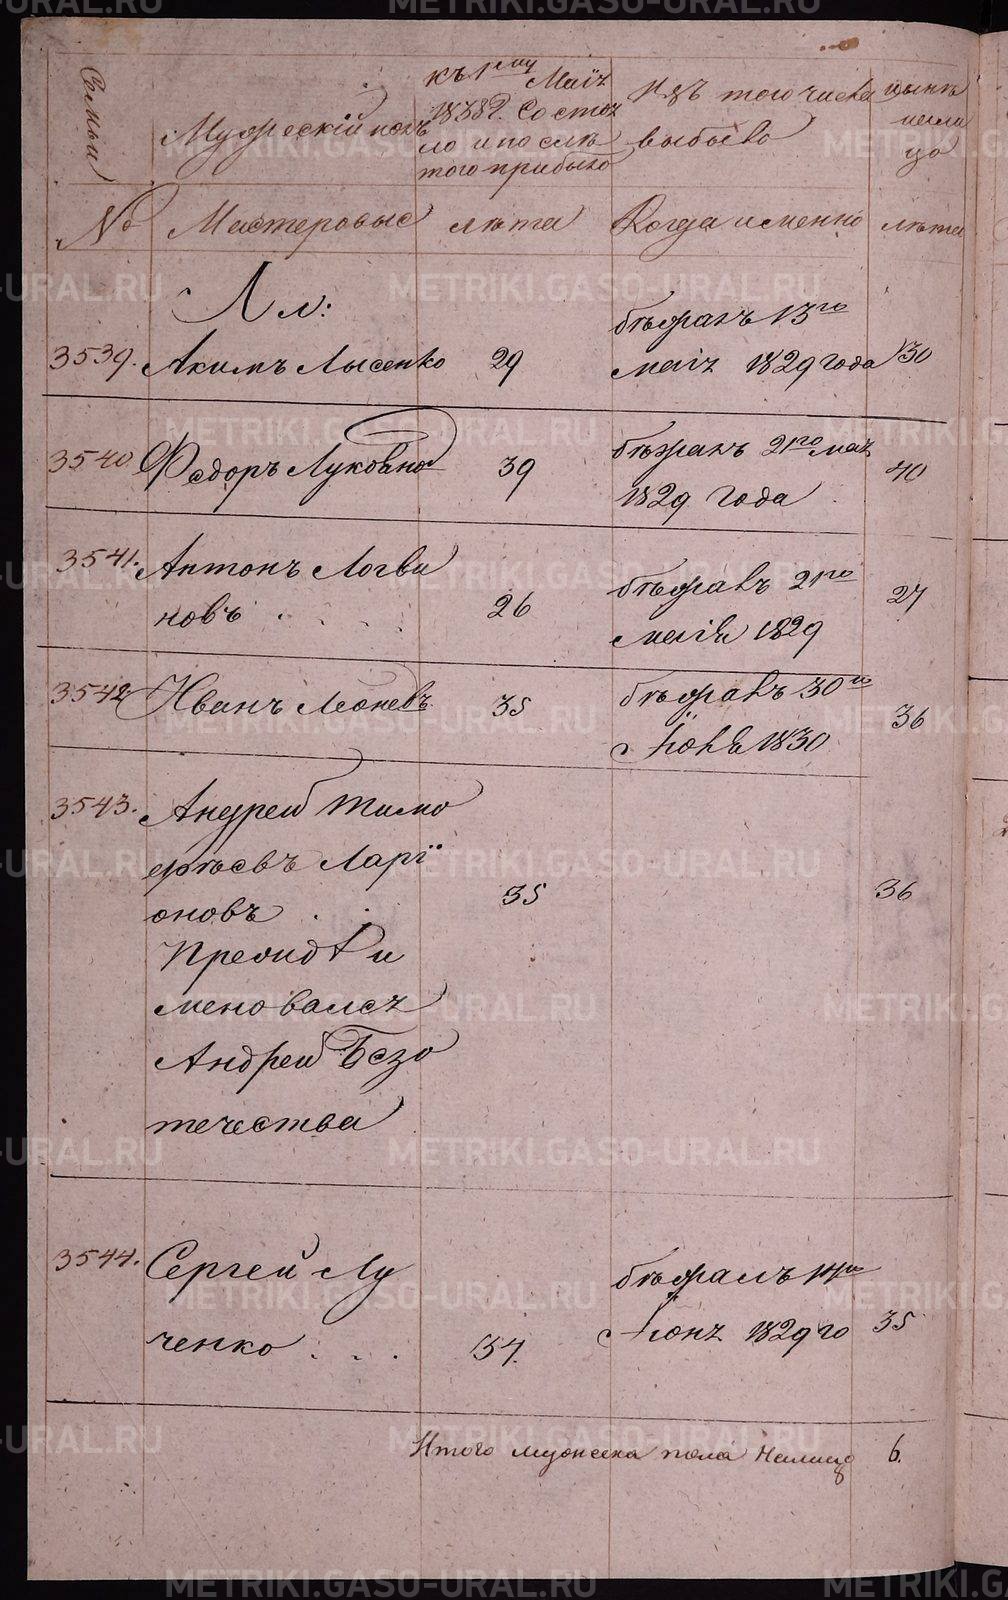 Семьи
Мужескій полъ
къ 1му Маія
1838г. Состоя
ло и послѣ
того прибыло
Изъ того числа
выбыло
нынѣ
нали
цо
№
Мастеровые
лѣта
Когда именно
лѣта
Лл:
3539. Акимъ Лысенко 29
бѣжалъ 13го
маія 1829 года 30
3540 Федоръ Луковной 39
бѣжалъ 21го мая
1829 года
40
3541. Антонъ Логви
новъ . . . . 26
бѣжалъ 21го
маія 1829
27
3542 Иванъ Леоневъ 35
бѣжалъ 30го
Іюня 1830
36
3543. Андрей Тимо
фѣевъ Ларі
оновъ . . 35 36
Прежде и
меновался
Андрей Безо
течества
3544. Сергей Лу
ченко . . . 34.
бѣжалъ
Іюня 1829го 35
Итого мужеска пола налицо 6.